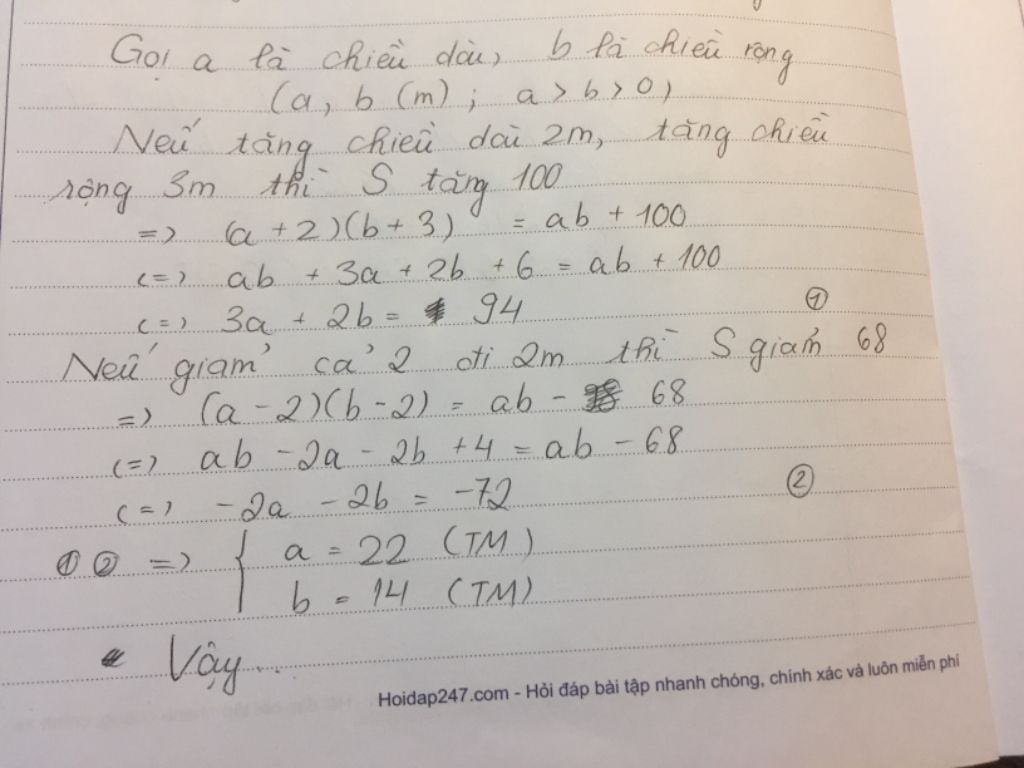 Gọi a là chiều dài, b là chiều rộng
(a, b (m) ; a > b > 0)
Nếu tăng chiều dài 2m, tăng chiều
rộng 3m thì S tăng 100
=> (a + 2)(b + 3) = ab + 100
<=> ab + 3a + 2b + 6 = ab + 100
<=> 3a + 2b = 94 ①
Nếu giảm cả 2 đi 2m thì S giảm 68
=> (a - 2)(b - 2) = ab - 68
<=> ab - 2a - 2b + 4 = ab - 68
<=> -2a - 2b = -72 ②
① ② => { a = 22 (TM)
b = 14 (TM)
Vậy...
Hoidap247.com - Hỏi đáp bài tập nhanh chóng, chính xác và luôn miễn phí